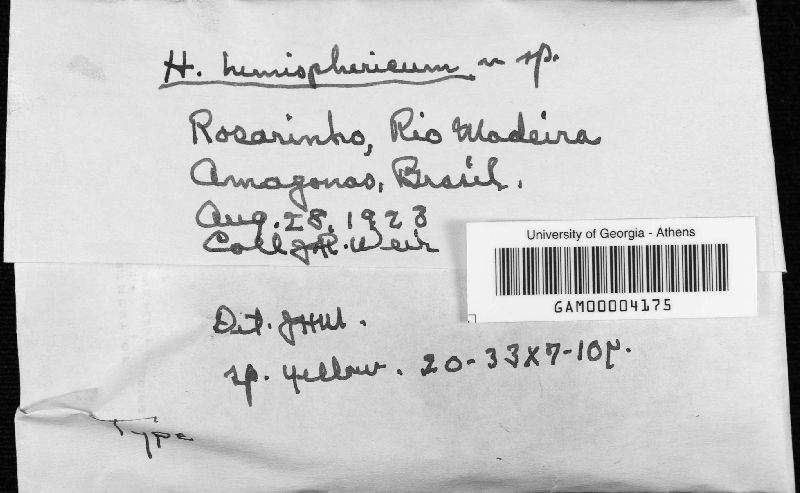 H. hemisphericum n sp.
Rosarinho, Rio Madeira
Amazonas, Brasil.
Aug. 28, 1923
Coll J.R. Weir
University of Georgia - Athens
GAM00004175
Det. JHM.
sp. yellow. 20-33X7-10µ.
Type